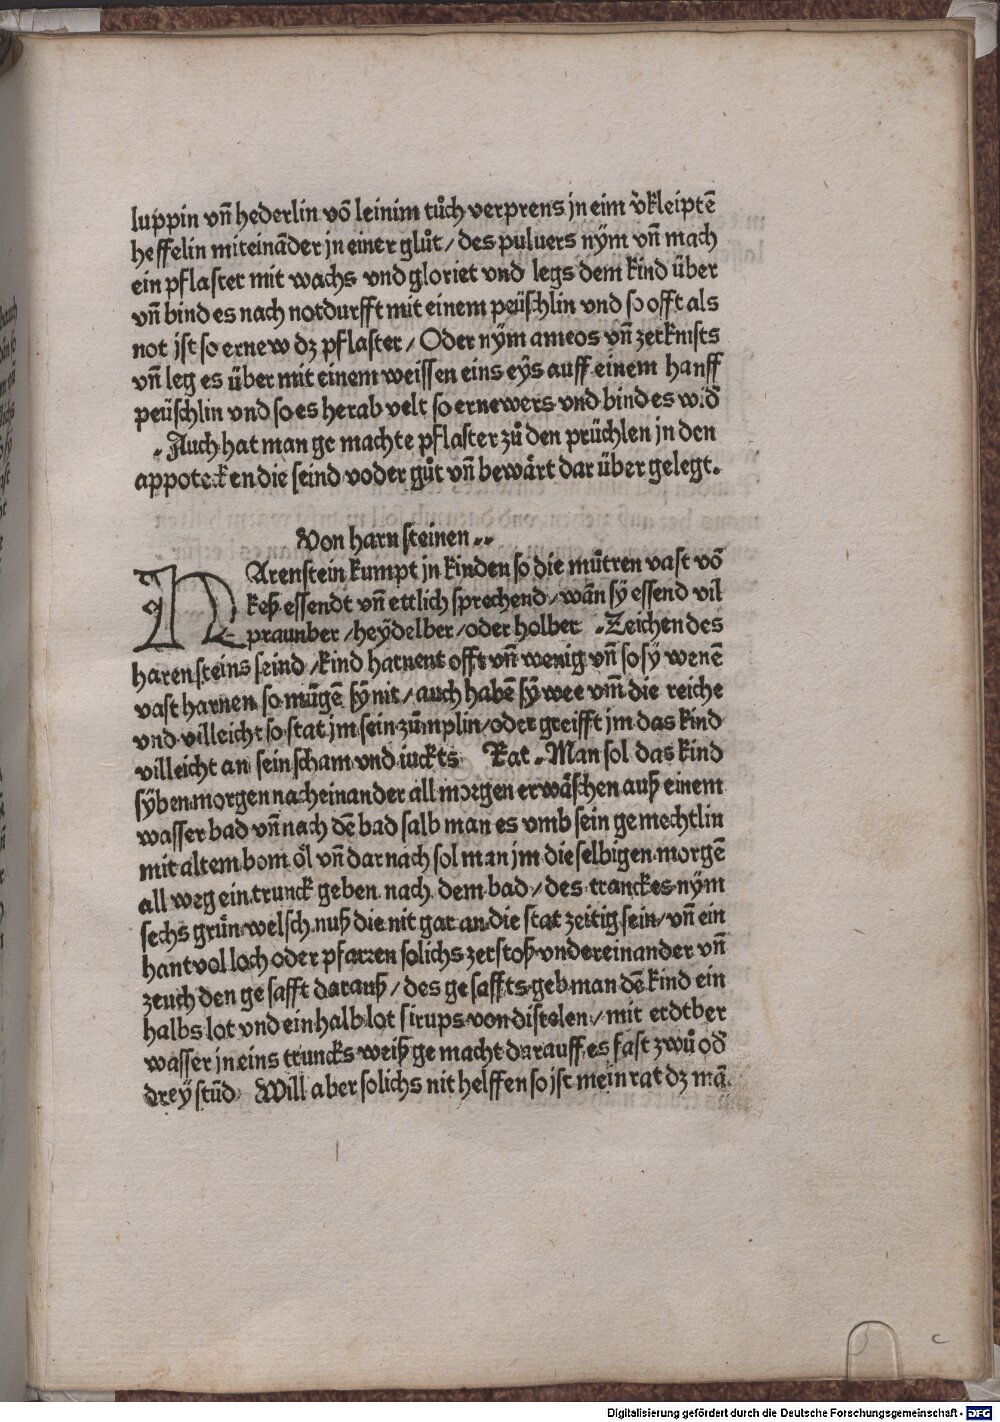 luppin vn̄ hederlin vō leinim tůch verprens jn eim v̉kleiptē
heffelin miteināder jn einer glůt / des puluers nÿm vn̄ mach
ein pflaster mit wachs vnd gloriet vnd legs dem kind über
vn̄ bind es nach notdurfft mit einem peüschlin vnd so offt als
not jst so ernew dz pflaster / Oder nÿm ameos vn̄ zerknists
vn̄ leg es über mit einem weissen eins eÿs auff einem hanff
peüschlin vnd so es herab velt so ernewers vnd bind es wid̄
. Auch hat man ge machte pflaster zů den prüchlen jn den
appotecken die seind voder gůt vn̄ bewärt dar über gelegt.
Von harn steinen ..
HArenstein kumpt jn kinden so die můtren vast vō
keß essendt vn̄ ettlich sprechend / wān sÿ essend vil
praunber / heÿdelber / oder holber . Zeichen des
harensteins seind / kind harnent offt vn̄ wenig vn̄ so sÿ wenē
vast harnen so mügē sÿ nit / auch habē sÿ wee vm̄ die reiche
vnd villeicht so stat jm sein zümplin / oder greifft jm das kind
villeicht an sein scham vnd iuckts Rat . Man sol das kind
sÿben morgen nacheinander all morgen erwäschen auß einem
wasser bad vn̄ nach dē bad salb man es vmb sein ge mechtlin
mit altem bom öl vn̄ dar nach sol man jm die selbigen morgē
all weg ein trunck geben nach dem bad / des tranckes nÿm
sechs grün welsch nuß die nit gar an die stat zeitig sein / vn̄ ein
hantvol loch oder pfarren solichs zerstoß vndereinander vn̄
zeuch den ge safft darauß / des ge saffts geb man dē kind ein
halbs lot vnd ein halb lot sirups von distelen / mit erdtber
wasser jn eins truncks weiß ge macht darauff es fast zwů od̄
dreÿ stūd Will aber solichs nit helffen so jst mein rat dz mā
c
Digitalisierung gefördert durch die Deutsche Forschungsgemeinschaft - DFG